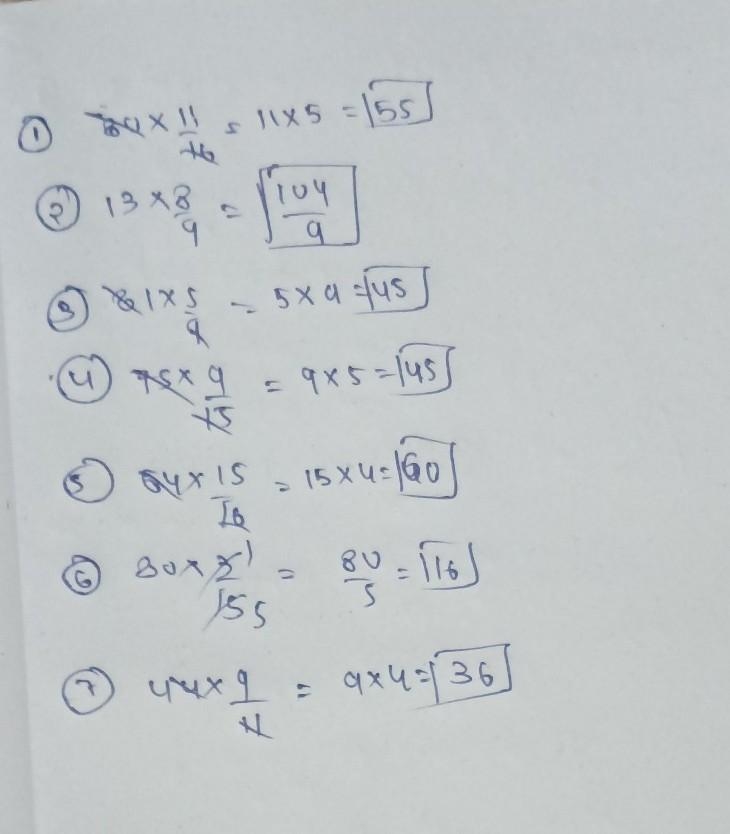 ① × 11/16 = 11×5 = 55
② 13 × 8/9 = 104/9
③ 81 × 5/9 = 5×9 = 45
④ 75 × 9/15 = 9×5 = 45
⑤ 64 × 15/16 = 15×4 = 60
⑥ 80 × 3 1/15 5 = 80/5 = 16
⑦ 44 × 9/11 = 9×4 = 36